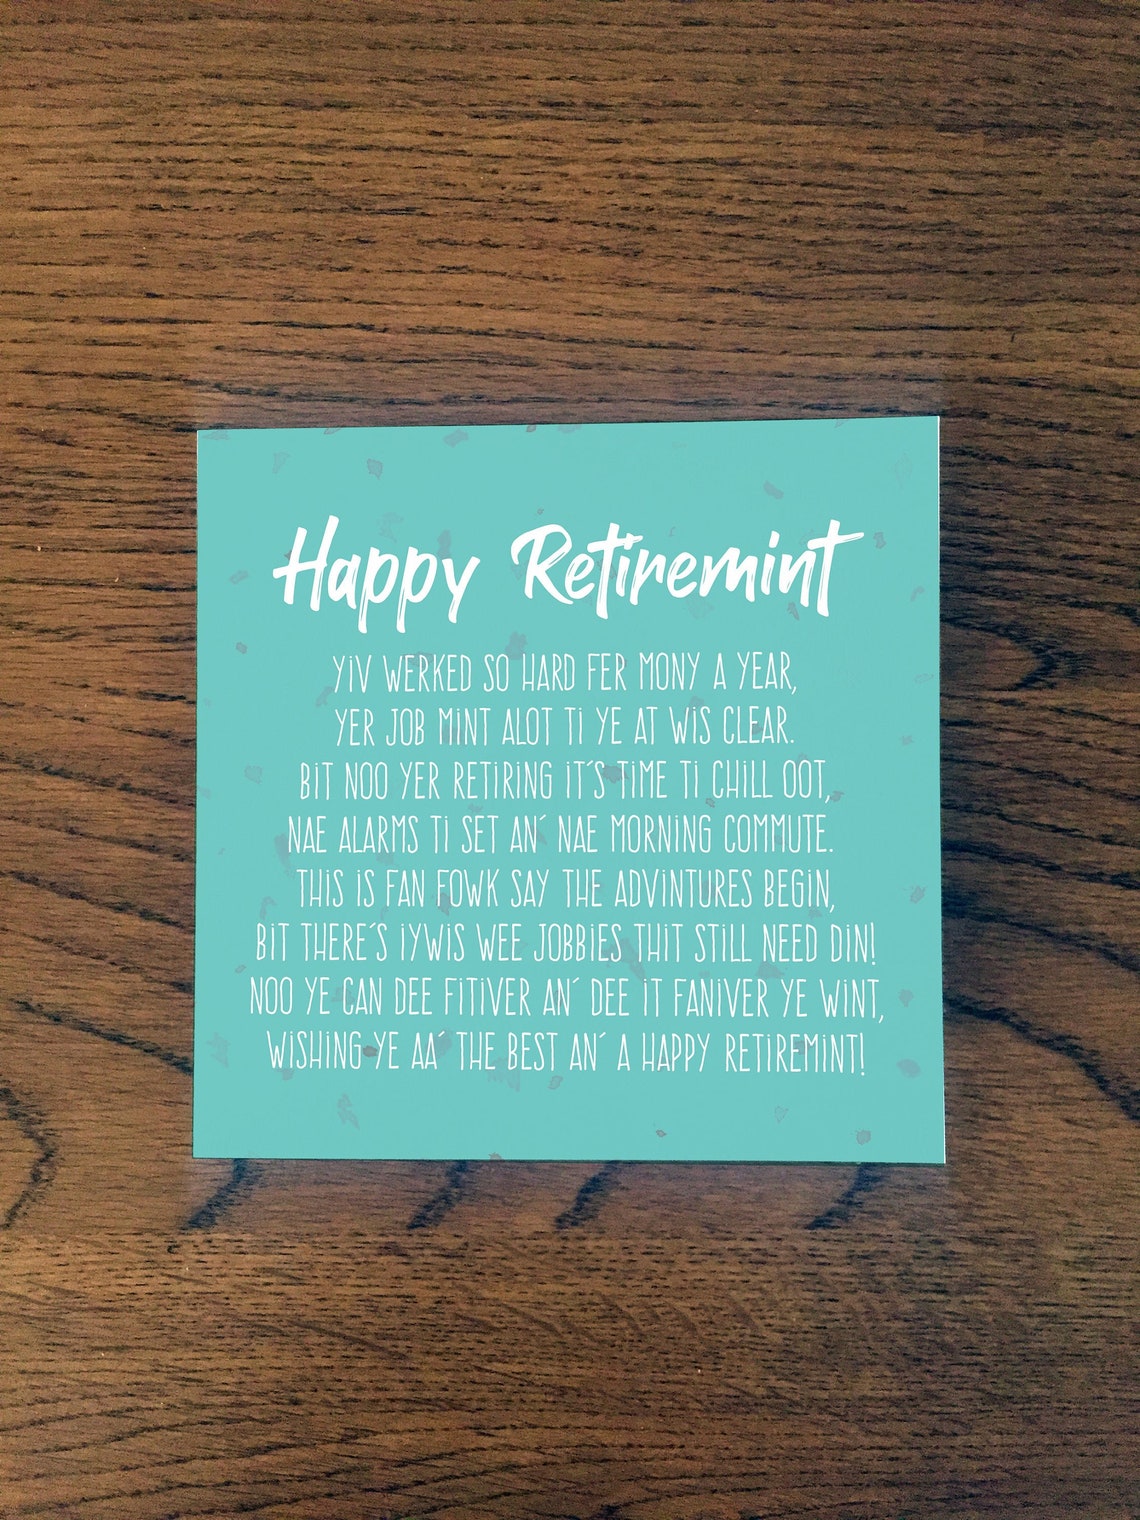 Happy Retiremint
YiV WERKED SO HARD FER MONY A YEAR,
YER JOB MiNT ALOT Ti YE AT WiS CLEAR.
BiT NOO YER RETiRiNG iT'S TiME Ti CHiLL OOT,
NAE ALARMS Ti SET AN' NAE MORNiNG COMMUTE.
THiS iS FAN FOWK SAY THE ADViNTURES BEGiN,
BiT THERE'S iYWiS WEE JOBBiES THiT STiLL NEED DiN!
NOO YE CAN DEE FiTiVER AN' DEE iT FANiVER YE WiNT,
WiSHiNG YE AA' THE BEST AN' A HAPPY RETiREMiNT!